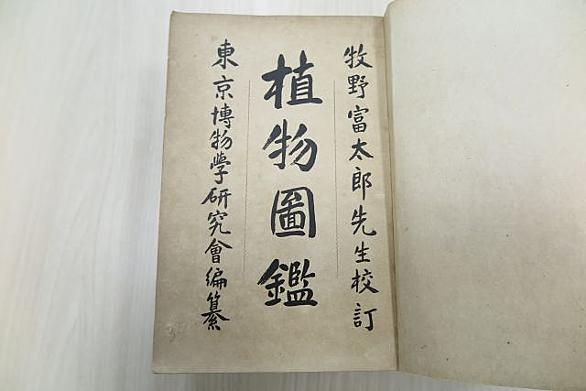 牧野富太郎先生校訂
植物圖鑑
東京博物學研究會編纂